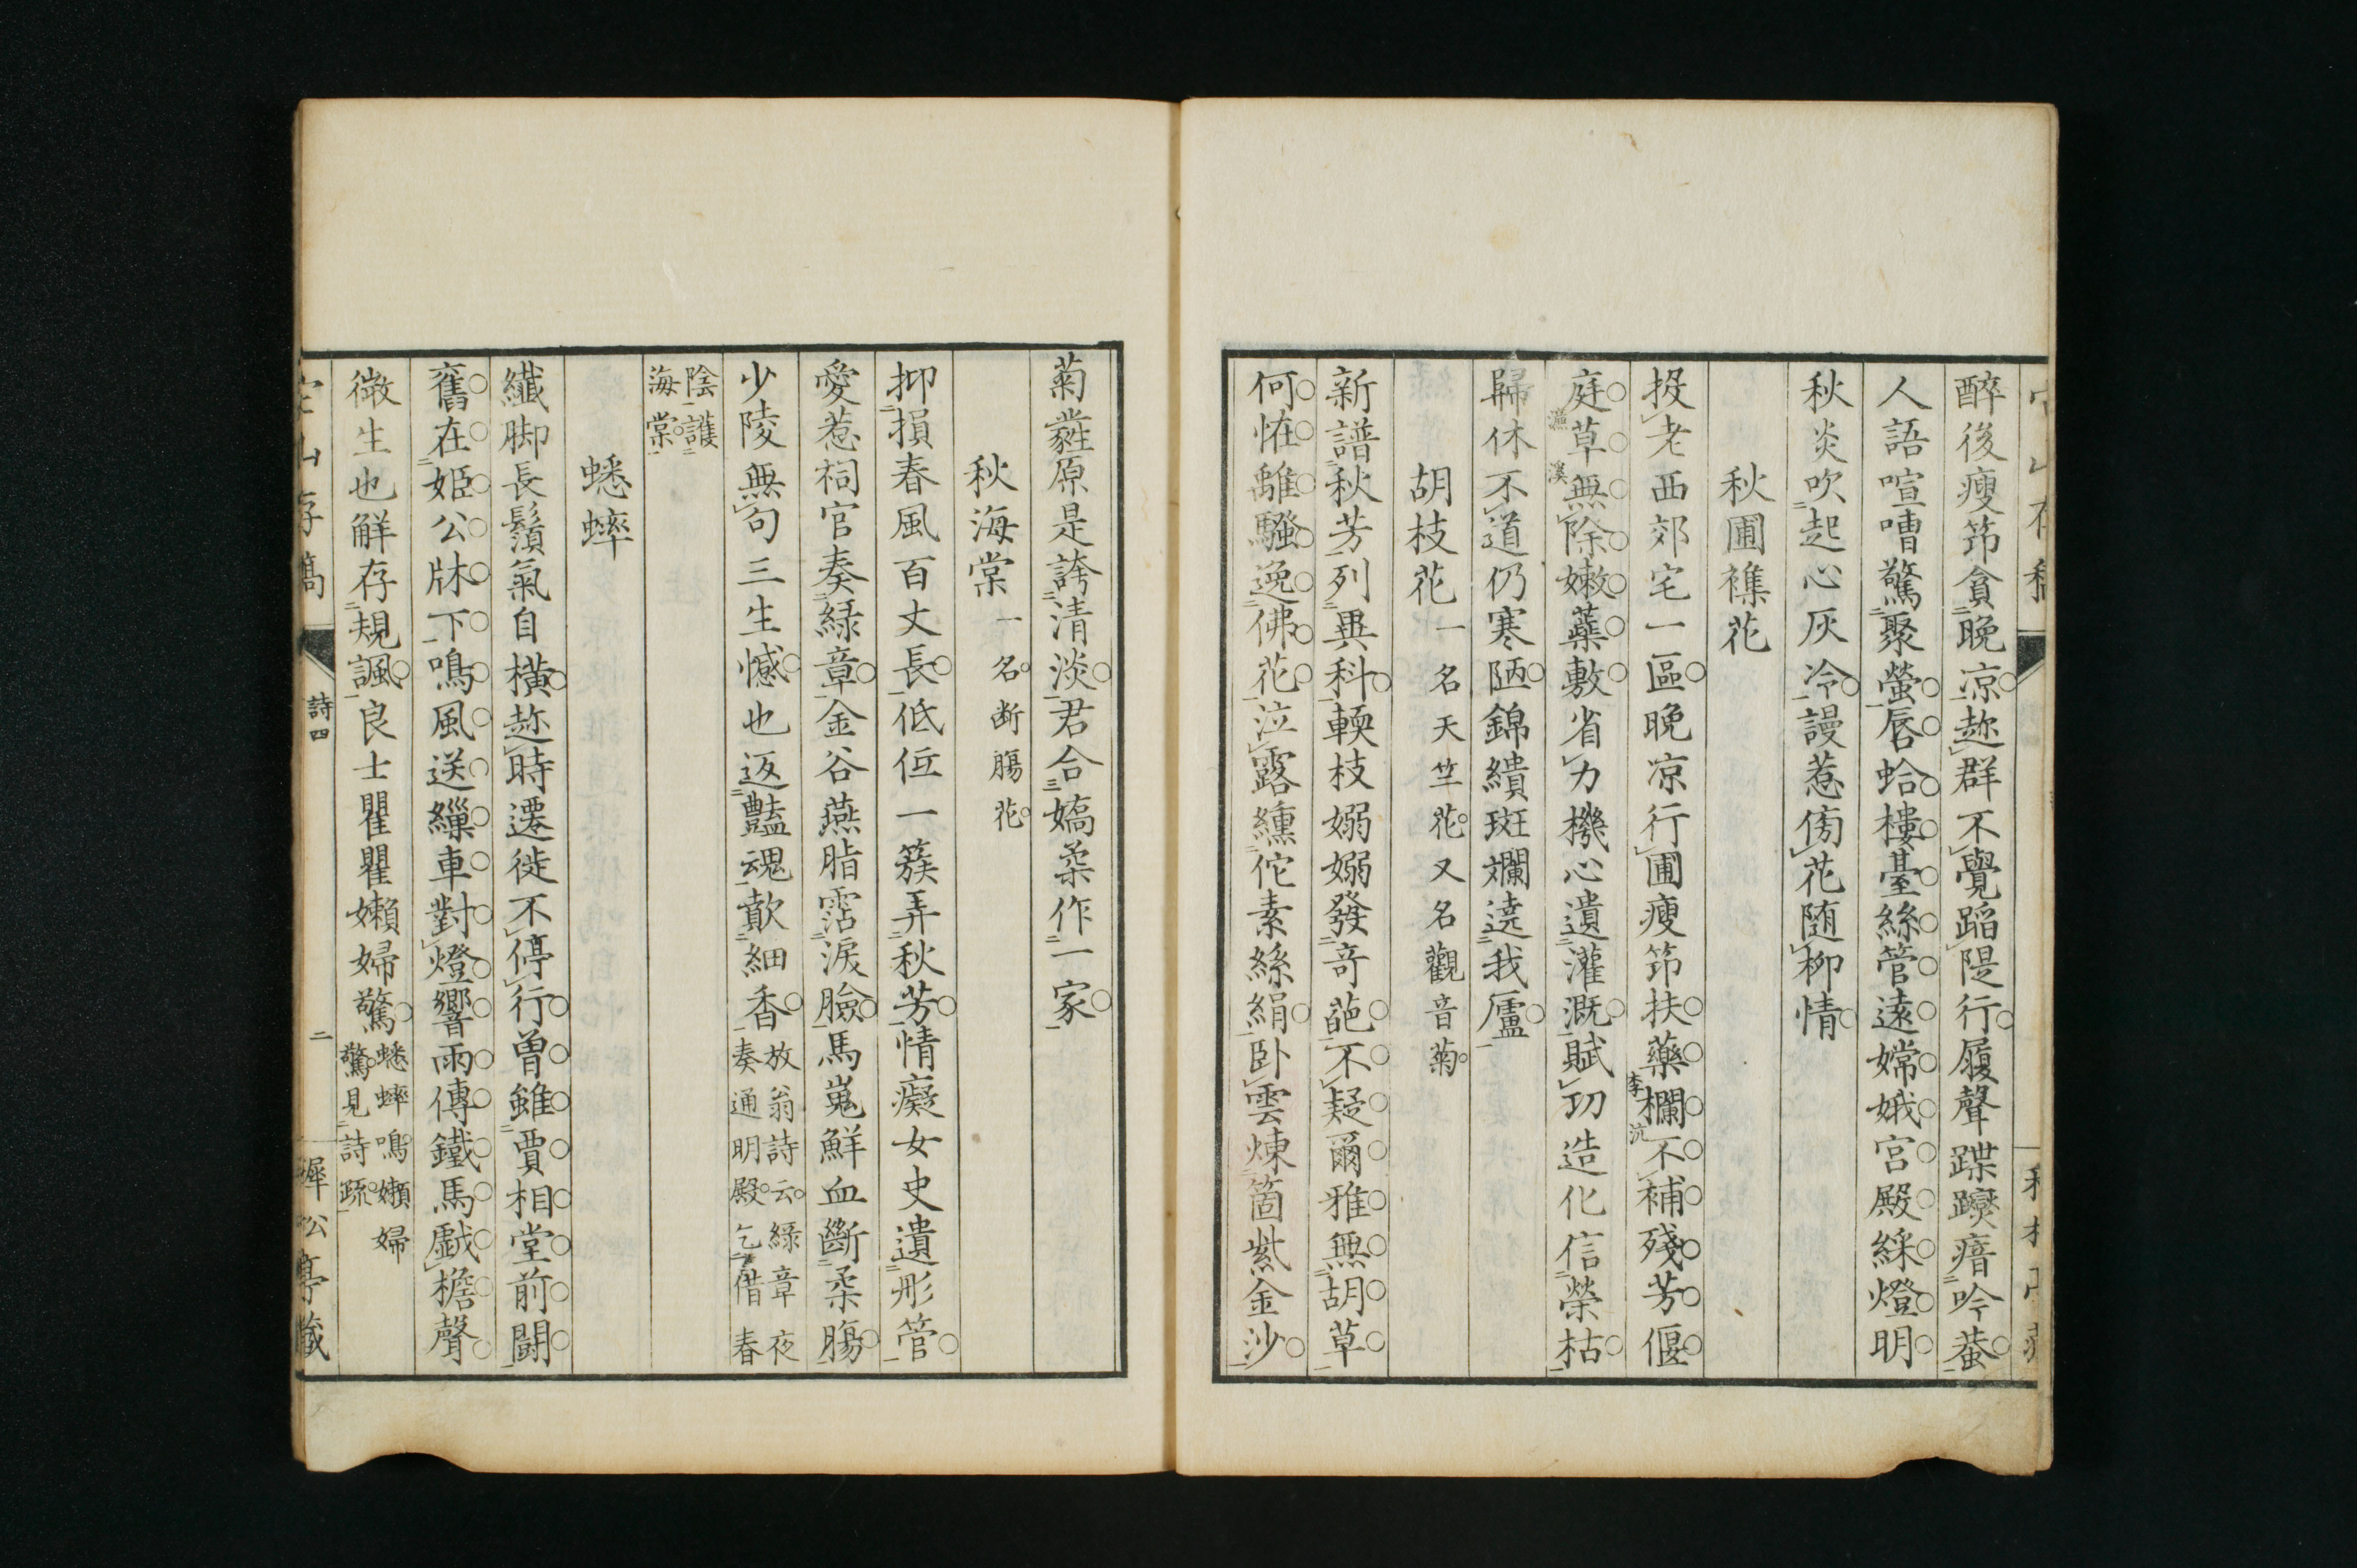 醉後瘦笻貪晚凉趂群不覺蹈隄行履聲蹀躞瘖吟蛬
人語喧嘈驚聚螢唇蛤樓臺絲管遠嫦娥宮殿綵燈明
秋炎吹起心灰冷謾惹傍花随柳情
秋圃襍花
投老西郊宅一區晚凉行圃瘦笻扶藥欄不補殘芳偃
李沆
庭草無除嫩蘂敷省力機心遺灌漑賦功造化信榮枯
濂溪
歸休不道仍寒陋錦繢斑斕遶我廬
胡枝花一名天竺花又名觀音菊
新譜秋芳列異科輭枝嫋嫋發奇葩不疑爾雅無胡草
何恠離騷逸佛花泣露纁佗素絲絹臥雲煉箇紫金沙
菊蕤原是誇清淡君合嬌柔作一家
秋海棠一名断膓花
抑損春風百丈長低佪一簇弄秋芳情癡女史遺彤管
愛惹祠官奏緑章金谷燕脂霑淚臉馬嵬鮮血斷柔膓
少陵無句三生憾也返豔魂歆細香放翁詩云緑章夜
奏通明殿乞借春
陰護
海棠
蟋蟀
纖脚長鬚氣自橫趂時遷徙不停行曾雖賈相堂前鬪
舊在姬公牀下鳴風送繅車對燈響雨傳鐵馬戯檐聲
微生也觧存規諷良士瞿瞿嬾婦驚蟋蟀鳴嬾婦
驚見詩䟽
詩四
二